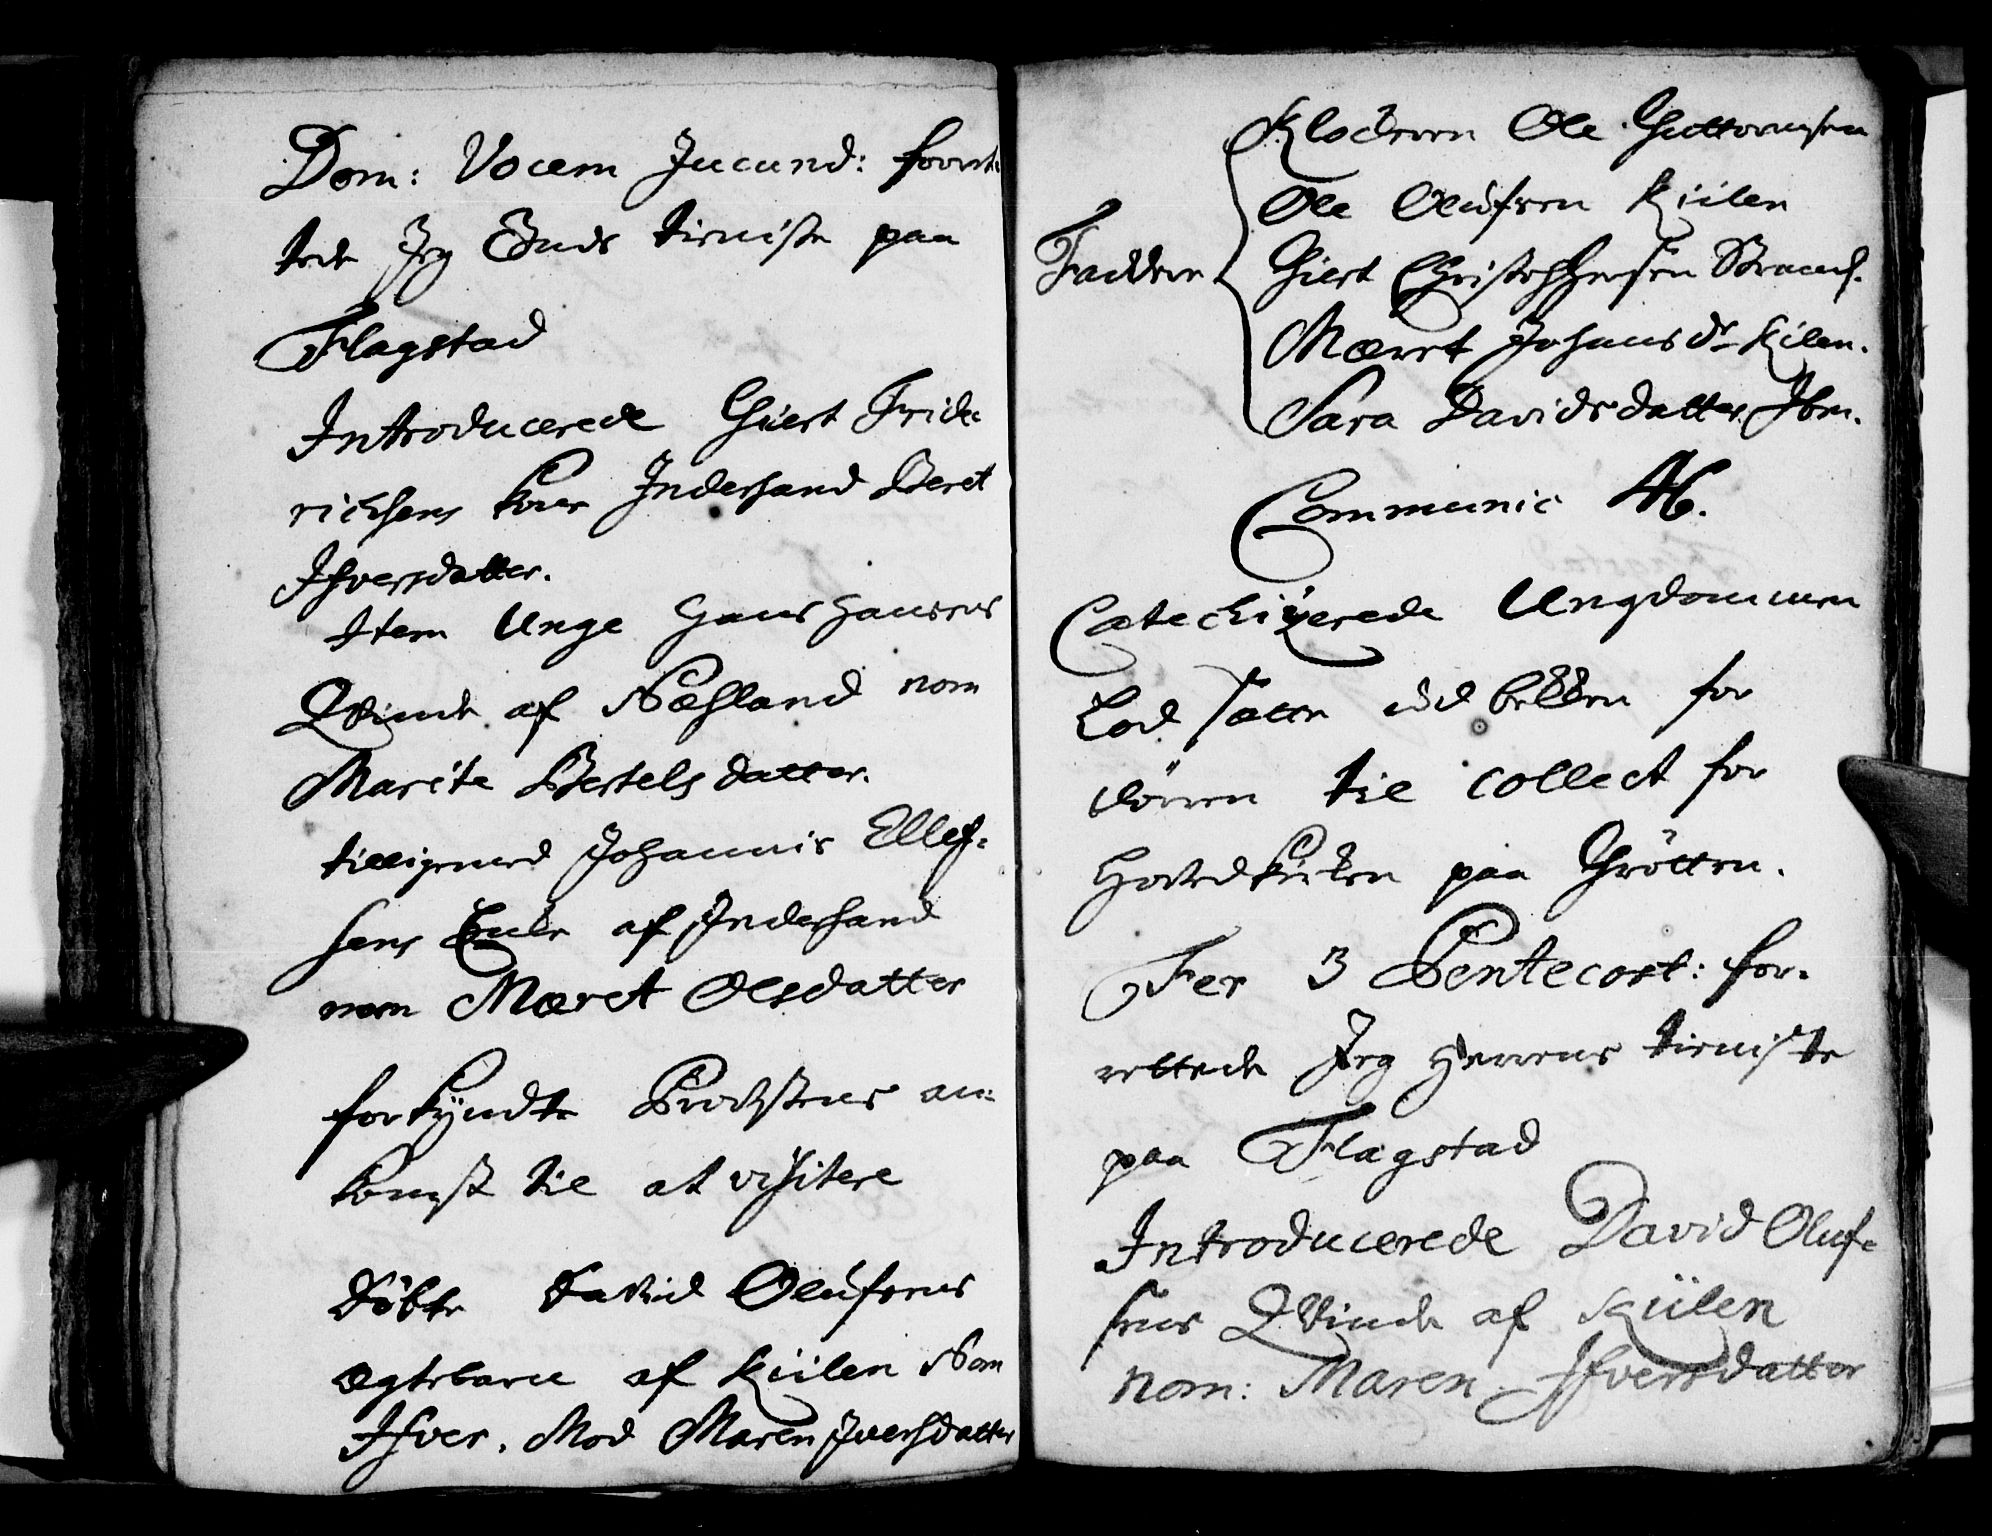 Dom: Vocem Jucund: forret
tede Jeg Guds tieniste paa
Flagstad
Introducerede Giert Fride
richsens Kone Indersand Beret
Ifversdatter.
Item Unge Hans Hansens
Qvinde af Næsland nom
Marite Bertelsdatter.
tilligemed Johannis Ellef-
sens Enke af Indersand
nom Mæret Olsdatter
forkyndte Provstens an-
komst til at visitere
døbte David Olufsens
ægtebarn af Kiilen Nom
Ifver. Mod Maren Iversdatter
Klockeren Ole Guttormsen
Ole Olufsen Kiilen
Faddere Giert Christophersen
Mæret Johansdr Kilen.
Sara Davidsdatter Ibm.
Communic 46.
Catechizerede Ungdommen
Lod sætte ud becken for
dören til collect for
Hovedkirken paa Grötten.
Fer 3 Pentecost: for-
rettede Jeg Herrens tieniste
paa Flagstad
Introducerede David Oluf-
sens Qvinde af Kiilen
nom: Maren Ifversdatter